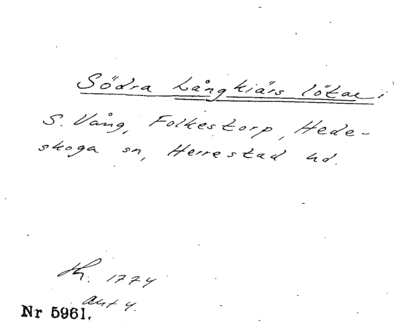 Södra Långkiärs lökar i
S. Vång, Folkestorp, Hede-
skoga sn, Herrestad hd.
1774
akt 4.
Nr 5961.